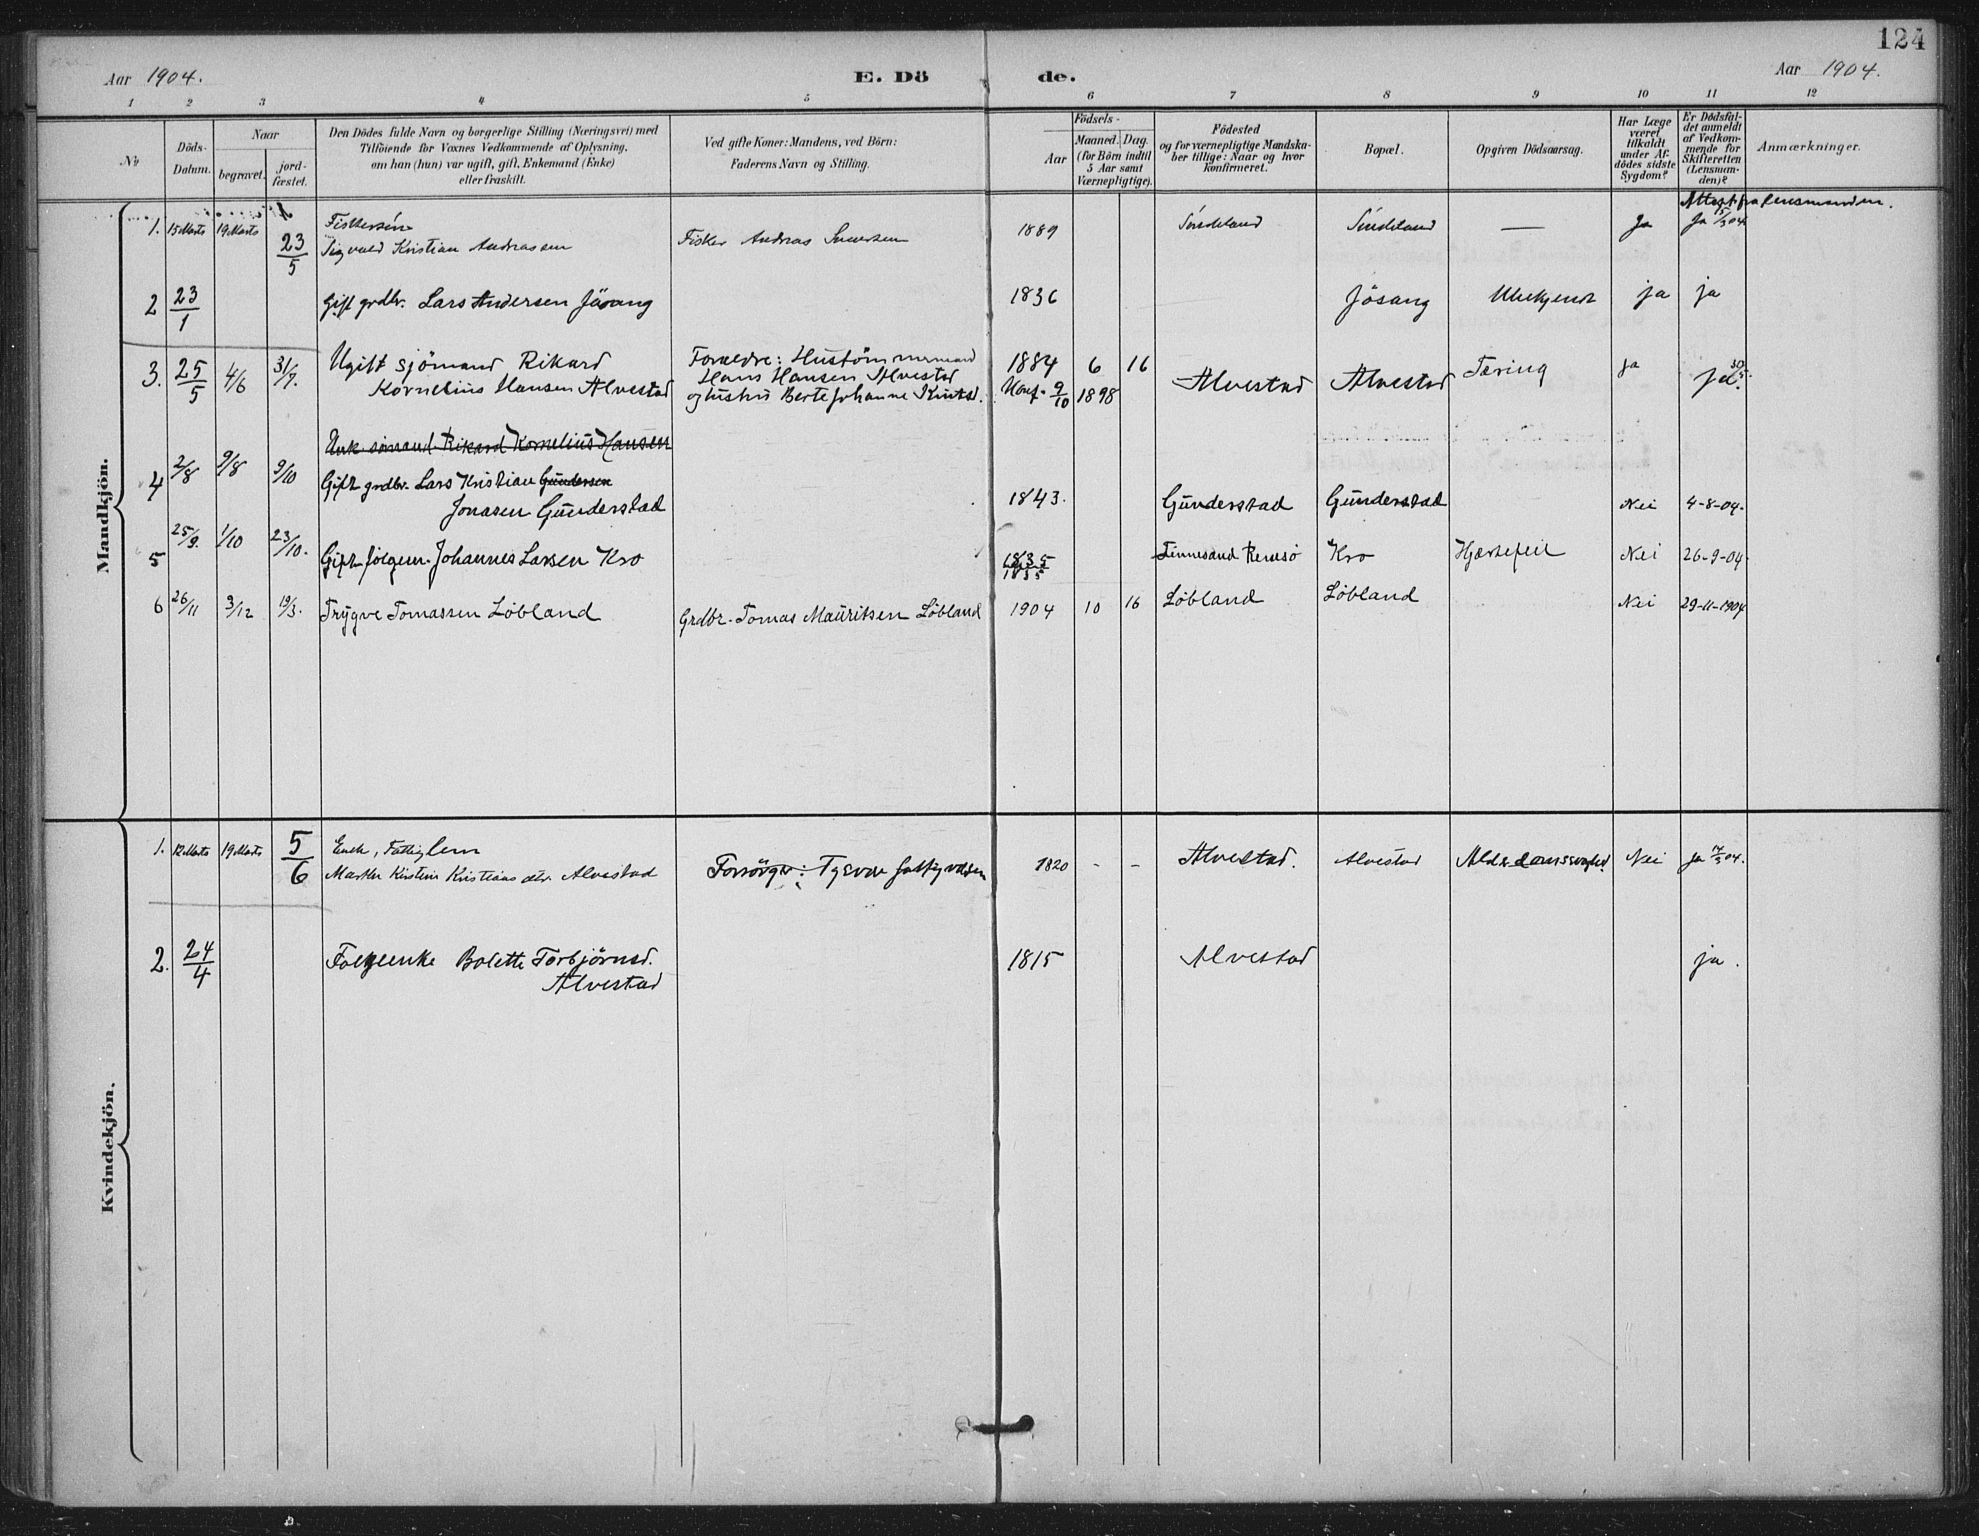 124
Aar 1904. E. Dö de. Aar 1904.
1 2 3 4 5 6 7 8 9 10 11 12
No Döds-Datum. Naar begravet. jord-fæstet.
Den Dödes fulde Navn og borgerlige Stilling (Næringsvei) med
Tilföiende for Voxnes Vedkommende af Oplysning,
om han (hun) var ugift, gift, Enkemand (Enke)
eller fraskilt.
Ved gifte Koner: Mandens, ved Börn:
Faderens Navn og Stilling.
Födsels-
Aar Maaned. Dag.
(for Börn indtil
5 Aar samt
Værnepligtige).
Födested
og for værnepligtige Mandska-
ber tillige: Naar og hvor
konfirmeret.
Bopæl.
Opgiven Dödsaarsag.
Har Læge
været
tilkaldt
under Af-
dödes sidste
Sygdom?
Er Dödsfal-
det anmeldt
af Vedkom-
mende for
Skifteretten
(Lensman-
den)?
Anmærkninger.
Mandkjön.
Attest fra lensmanden.
1. 15 Marts 19 Marts 23/5 Fiskersön
Sigvald Kristian Andreassen Fisker Andreas 1889 Ja Ja 15/3 04
2 23/1 Gift grdbr. Lars Andersen Jösang 1836 Jösang Ubekjendt ja ja
3. 25/5 4/6 31/7. Ugift Sjömand Rikard Forældre: Hustömmermand 1884 6 16 Tæring Ja
Kornelius Hansen Alvestad Hans Hansen Alvestad Alvestad Alvestad
og hustru Berte Johanne Knutsd. Konf. 9/10 1898
Enk. sömand Rikard Kornelius Hansen
4 2/8 9/8 9/10 Gift grdbr. Lars Kristian Gundersen
Jonasen Gunderstad 1843. Gunderstad Gunderstad Nei 4-8-04.
5 25/9. 1/10 23/10. Gift folgem. Johannes Larsen Kro 1835 1835 Finnesand Rennesö Kro Hjertefeil Nei 26-9-04
6 26/11 3/12 19/3. Trygve Tomassen Löbland Grdbr. Tomas Mauritsen Löbland 1904 10 16 Löbland Löbland Nei 29-11-1904
Kvindekjön.
1. 12 Marts 19 Marts 5/6 Enke, Fattiglem
Marthe Kristine Kristians dtr. Alvestad Forsörger: Tysvær fattigvæsen 1820 - - Alvestad. Alvestad Alderdomssvaghed. Nei Ja 14/3 04.
2. 24/4 Folgeenke Bolette Torbjörnsd.
Alvestad 1815 Alvestad ja.